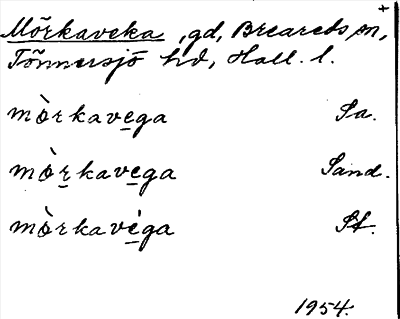 +
Mörkaveka, gd, Breareds sn,
Tönnersjö hd, Hall. l.
mò̀rkavega Sa.
mò̀rkavega Sand.
mò̀rkavéga St.
1954.